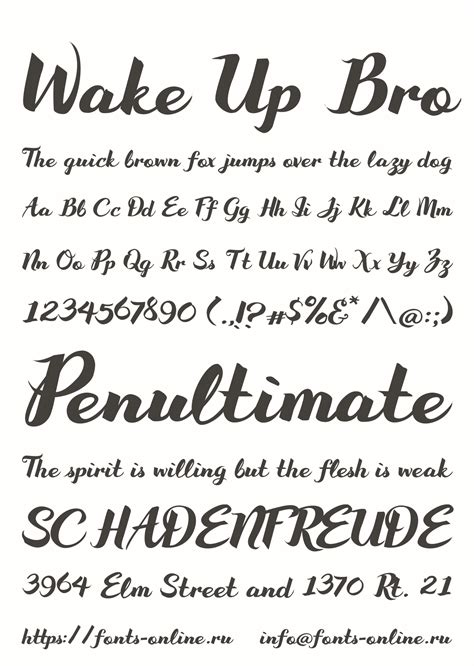 Wake Up Bro
The quick brown fox jumps over the lazy dog
Aa Bb Cc Dd Ee Ff Gg Hh Ii Jj Kk Ll Mm
Nn Oo Pp Qq Rr Ss Tt Uu Vv Ww Xx Yy Zz
1234567890 (.,!?#$%&* /|\@:;)
Penultimate
The spirit is willing but the flesh is weak
SCHADENFREUDE
3964 Elm Street and 1370 Rt. 21
https://fonts-online.ru info@fonts-online.ru